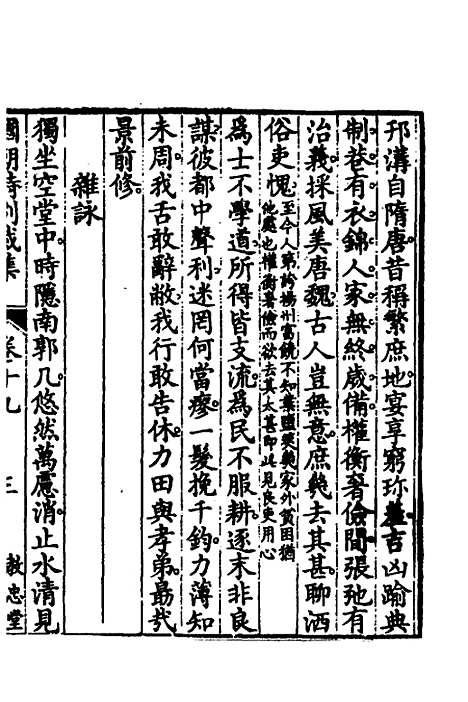 邗溝自隋唐昔稱繁庶地宴享窮珍釐吉凶踰典
制巷有衣錦人家無終歲備權衡奢儉間張弛有
治義採風美唐魏古人豈無意庶幾去其甚聊洒
俗吏愧
至今人競誇揚州富饒不知業鹽筴幾家外貧困猶
他處也權衡奢儉而欲去其太甚即此見良吏用心
爲士不學道所得皆支流爲民不服耕逐末非良
謀彼都中聲利迷罔何當瘳一髮挽千鈞力薄知
未周我舌敢辭敝我行敢告休力田與孝弟勗哉
景前修
雜詠
獨坐空堂中時隱南郭几悠然萬慮消止水清見
國朝詩別裁集
卷十九
三
教忠堂